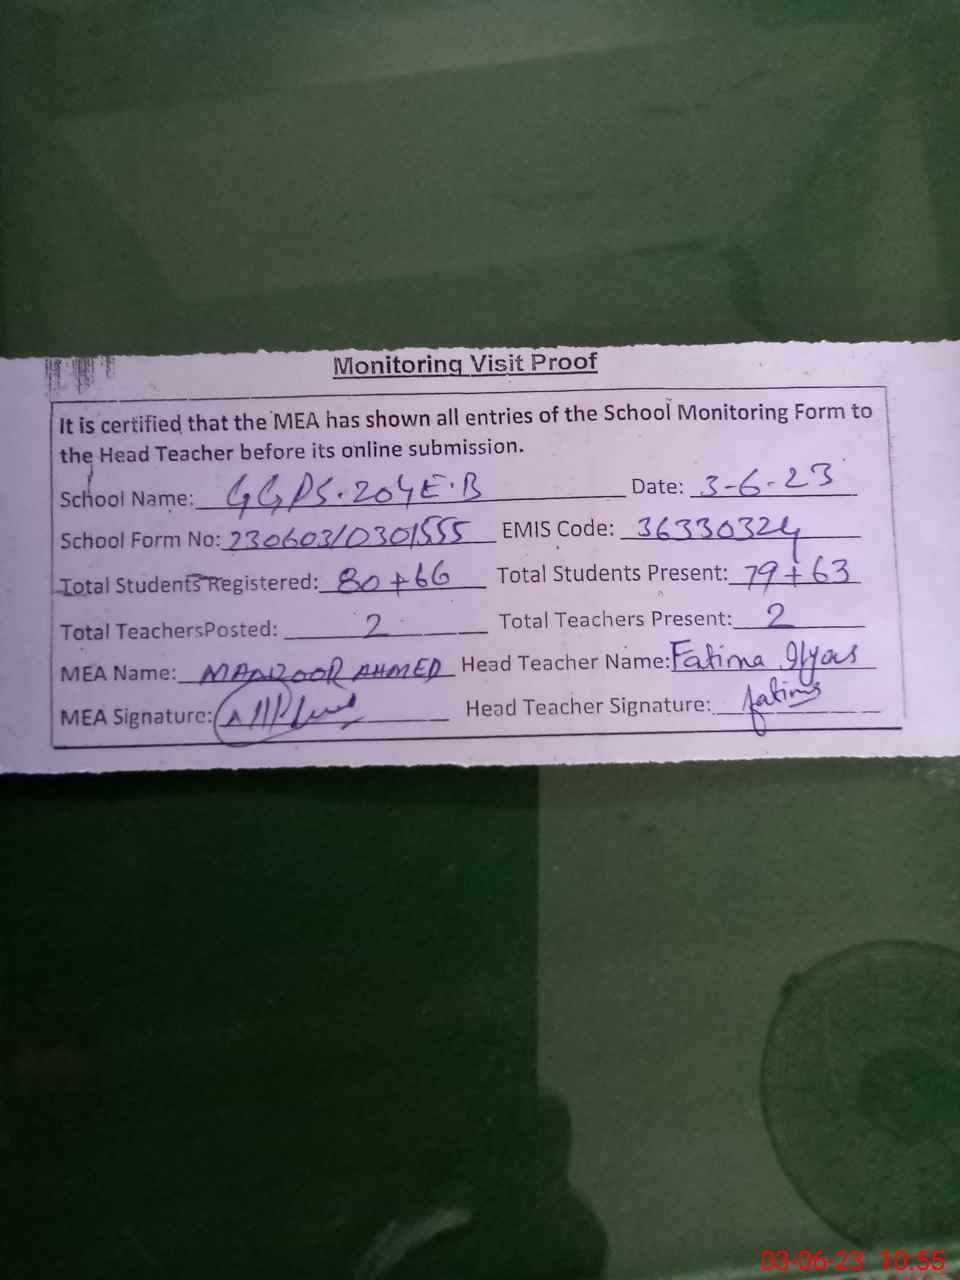 Monitoring Visit Proof
It is certified that the MEA has shown all entries of the School Monitoring Form to
the Head Teacher before its online submission.
School Name: GGPS. 204 E.B Date: 3-6-23
School Form No: 230603/0301555 EMIS Code: 36330324
Total Students Registered: 80+66 Total Students Present: 79+63
Total TeachersPosted: 2 Total Teachers Present: 2
MEA Name: MANZOOR AHMED Head Teacher Name: Fatima Ilyas
MEA Signature: Head Teacher Signature: fatima
03-06-23 10:55